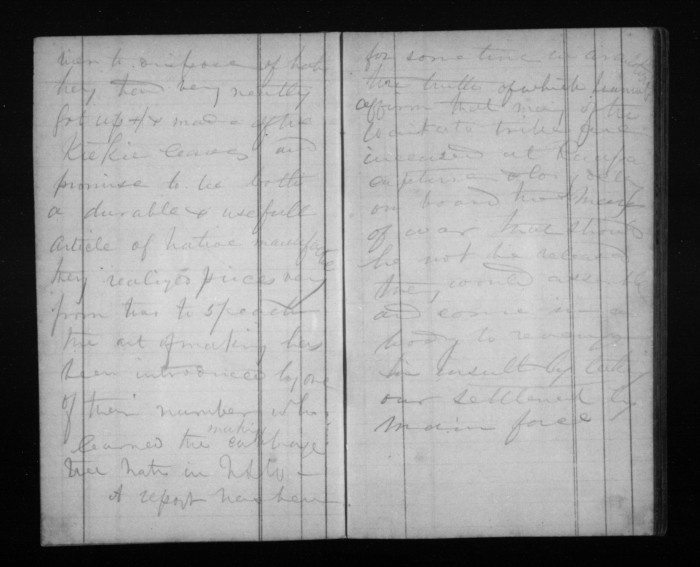 men to dispose of hats
they have being neatly
got up & made of the
Kiekie leaves and
promise to be both
a durable & usefull
article of native manufacture
they realize prices
from to
the art of making has
been introduced by one
of their number who
learned the making
the hats in
A report has been
for some time
the truth of which
affirm that many of the
Waikato tribe are
incensed at
capture &
on board the
of war that should
he not be released
they would assemble
and come in a
body to revenge
his insult by taking
our settlement by
main force